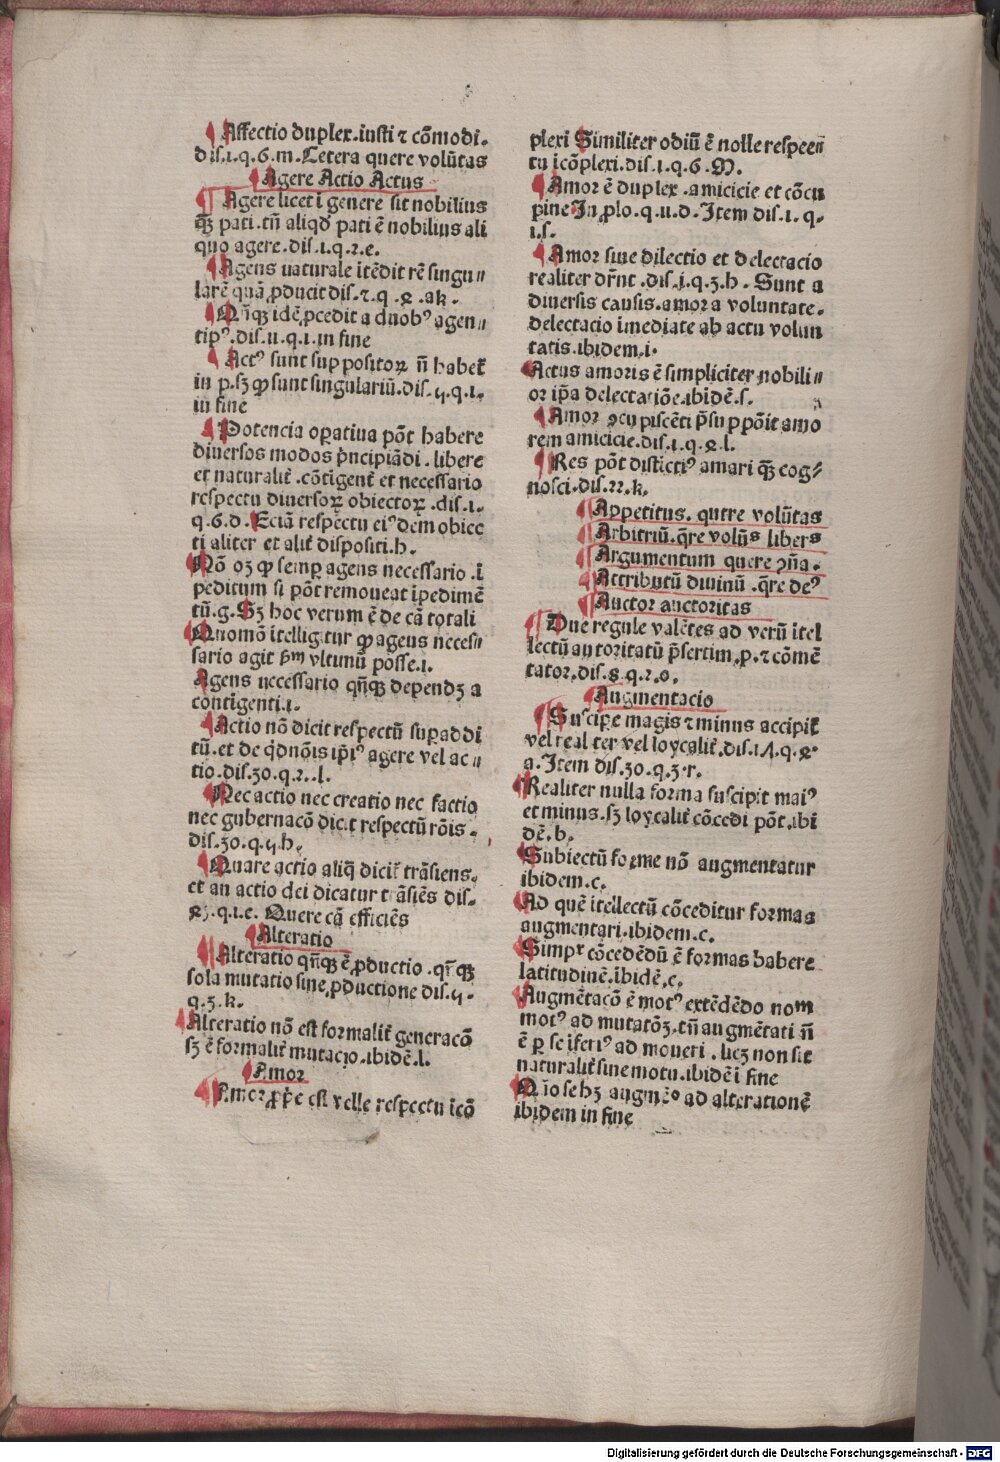 ¶ Affectio duplex.iusti ⁊ cōmodi.
dis.1.q.6.m.Cetera quere volūtas
¶ Agere Actio Actus
¶ Agere licet ī genere sit nobilius
qꝫ pati.tn̄ aliqd̄ pati ē nobilius ali
quo agere.dis.1.q.2.e.
¶ Agens naturale itēdit rē singu〃
larē quā ꝓducit dis.2.q.8.ak.
¶ Qn̄qꝫ idē ꝓcedit a duobꝰ agen〃
tipꝰ.dis.11.q.1.in fine
¶ Actꝰ sunt suppositoꝝ n̄ habet̄
in p.sꝫ ꝙ sunt singulariū.dis.5.q.1.
in fine
¶ Potencia oꝑatiua pōt habere
diuersos modos pͥncipiādi.libere
et naturalit̄.cōtīgent̄ et necessario
respectu diuersoꝝ obiectoꝝ.dis.1.
q.6.d.Eciā respectu eiꝰdem obiec
ti aliter et alit̄ dispositi.h.
Nō oꝫ ꝙ semꝑ agens necessario.ī
peditum si pōt remoueat īpedimē
tū.g.Sꝫ hoc verum ē de cā totali
Quomō ītelligitur ꝙ agens neces〃
sario agit ẜm vltimū posse.i.
Agens necessario qn̄qꝫ dependꝫ a
contīgenti.i.
¶ Actio nō dicit respectū suꝑaddi
tū.et de qd̄nōis ip̄iꝰ agere vel ac〃
tio.dis.30.q.2..l.
¶ Nec actio nec creatio nec factio
nec gubernacō dicit respectū rōis.
dis.30.q.5.h.
¶ Quare actio aliq̄ dicit̄ trāsiens.
et an actio dei dicatur trāsiēs dis.
83.q.1.e. Quere cā efficiēs
¶ Alteratio
¶ Alteratio qn̄qꝫ ē ꝓductio.qn̄qꝫ
sola mutatio sine ꝓductione dis.5.
q.3.k.
Alteratio nō est formalit̄ generacō
sꝫ ē formalit̄ mutacio.ibidē.l.
¶ Amor
¶ Amor ꝓpͥe est velle respectu īcō
plexi Similiter odiū ē nolle respec〃
tu īcōplexi.dis.1.q.6.M.
¶ Amor ē duplex.amicicie et cōcu
pine In ꝓlo.q.11.d.Item dis.1.q.
1.s.
¶ Amor siue dilectio et delectacio
realiter dr̄nt.dis.j.q.3.b.Sunt a
diuersis causis.amor a voluntate.
delectacio īmediate ab actu volun
tatis.ibidem.i.
Actus amoris ē simpliciter nobili〃
or ip̄a delectatiōe.ibidē.s.
¶ Amor ꝯcupiscēti p̄supponit amo
rem amicicie.dis.1.q.8.l.
¶ Res pōt distīctiꝰ amari qꝫ cog〃
nosci.dis.22.k.
¶ Appetitus. quere volūtas
¶ Arbitriū.qr̄e volūs libers
¶ Argumentum quere ꝯn̄a.
¶ Attributū diuinū.qr̄e deꝰ
¶ Auctor auctoritas
¶ Due regule valētes ad verū ītel
lectū autoritatū p̄sertim.p.⁊ cōmē
tator.dis.8.q.2.o.
¶ Augmentacio
¶ Suscipe magis ⁊ minus accipit̄
vel realiter vel loycalit̄.dis.17.q.8.
a.Item dis.30.q.3.r.
Realiter nulla forma suscipit maiꝰ
et minus.sꝫ loycalit̄ cōcedi pōt.ibi
dē.b.
Subiectū forme nō augmentatur
ibidem.c.
Ad quē ītellectū cōceditur formas
augmentari.ibidem.c.
Simpͬ cōcedēdū ē formas habere
latitudinē.ībidē.c.
Augmētacō ē motꝰ extēdēdo nom
motꝰ ad mutatōꝫ.tn̄ augmētati n̄
ē ꝑ se īferiꝰ ad moueri.licꝫ non sit
naturalit̄ sine motu.ibidē ī fine
Q̄io se hꝫ augmēº ad alterationē
ibidem in fine
Digitalisierung gefördert durch die Deutsche Forschungsgemeinschaft - DFG